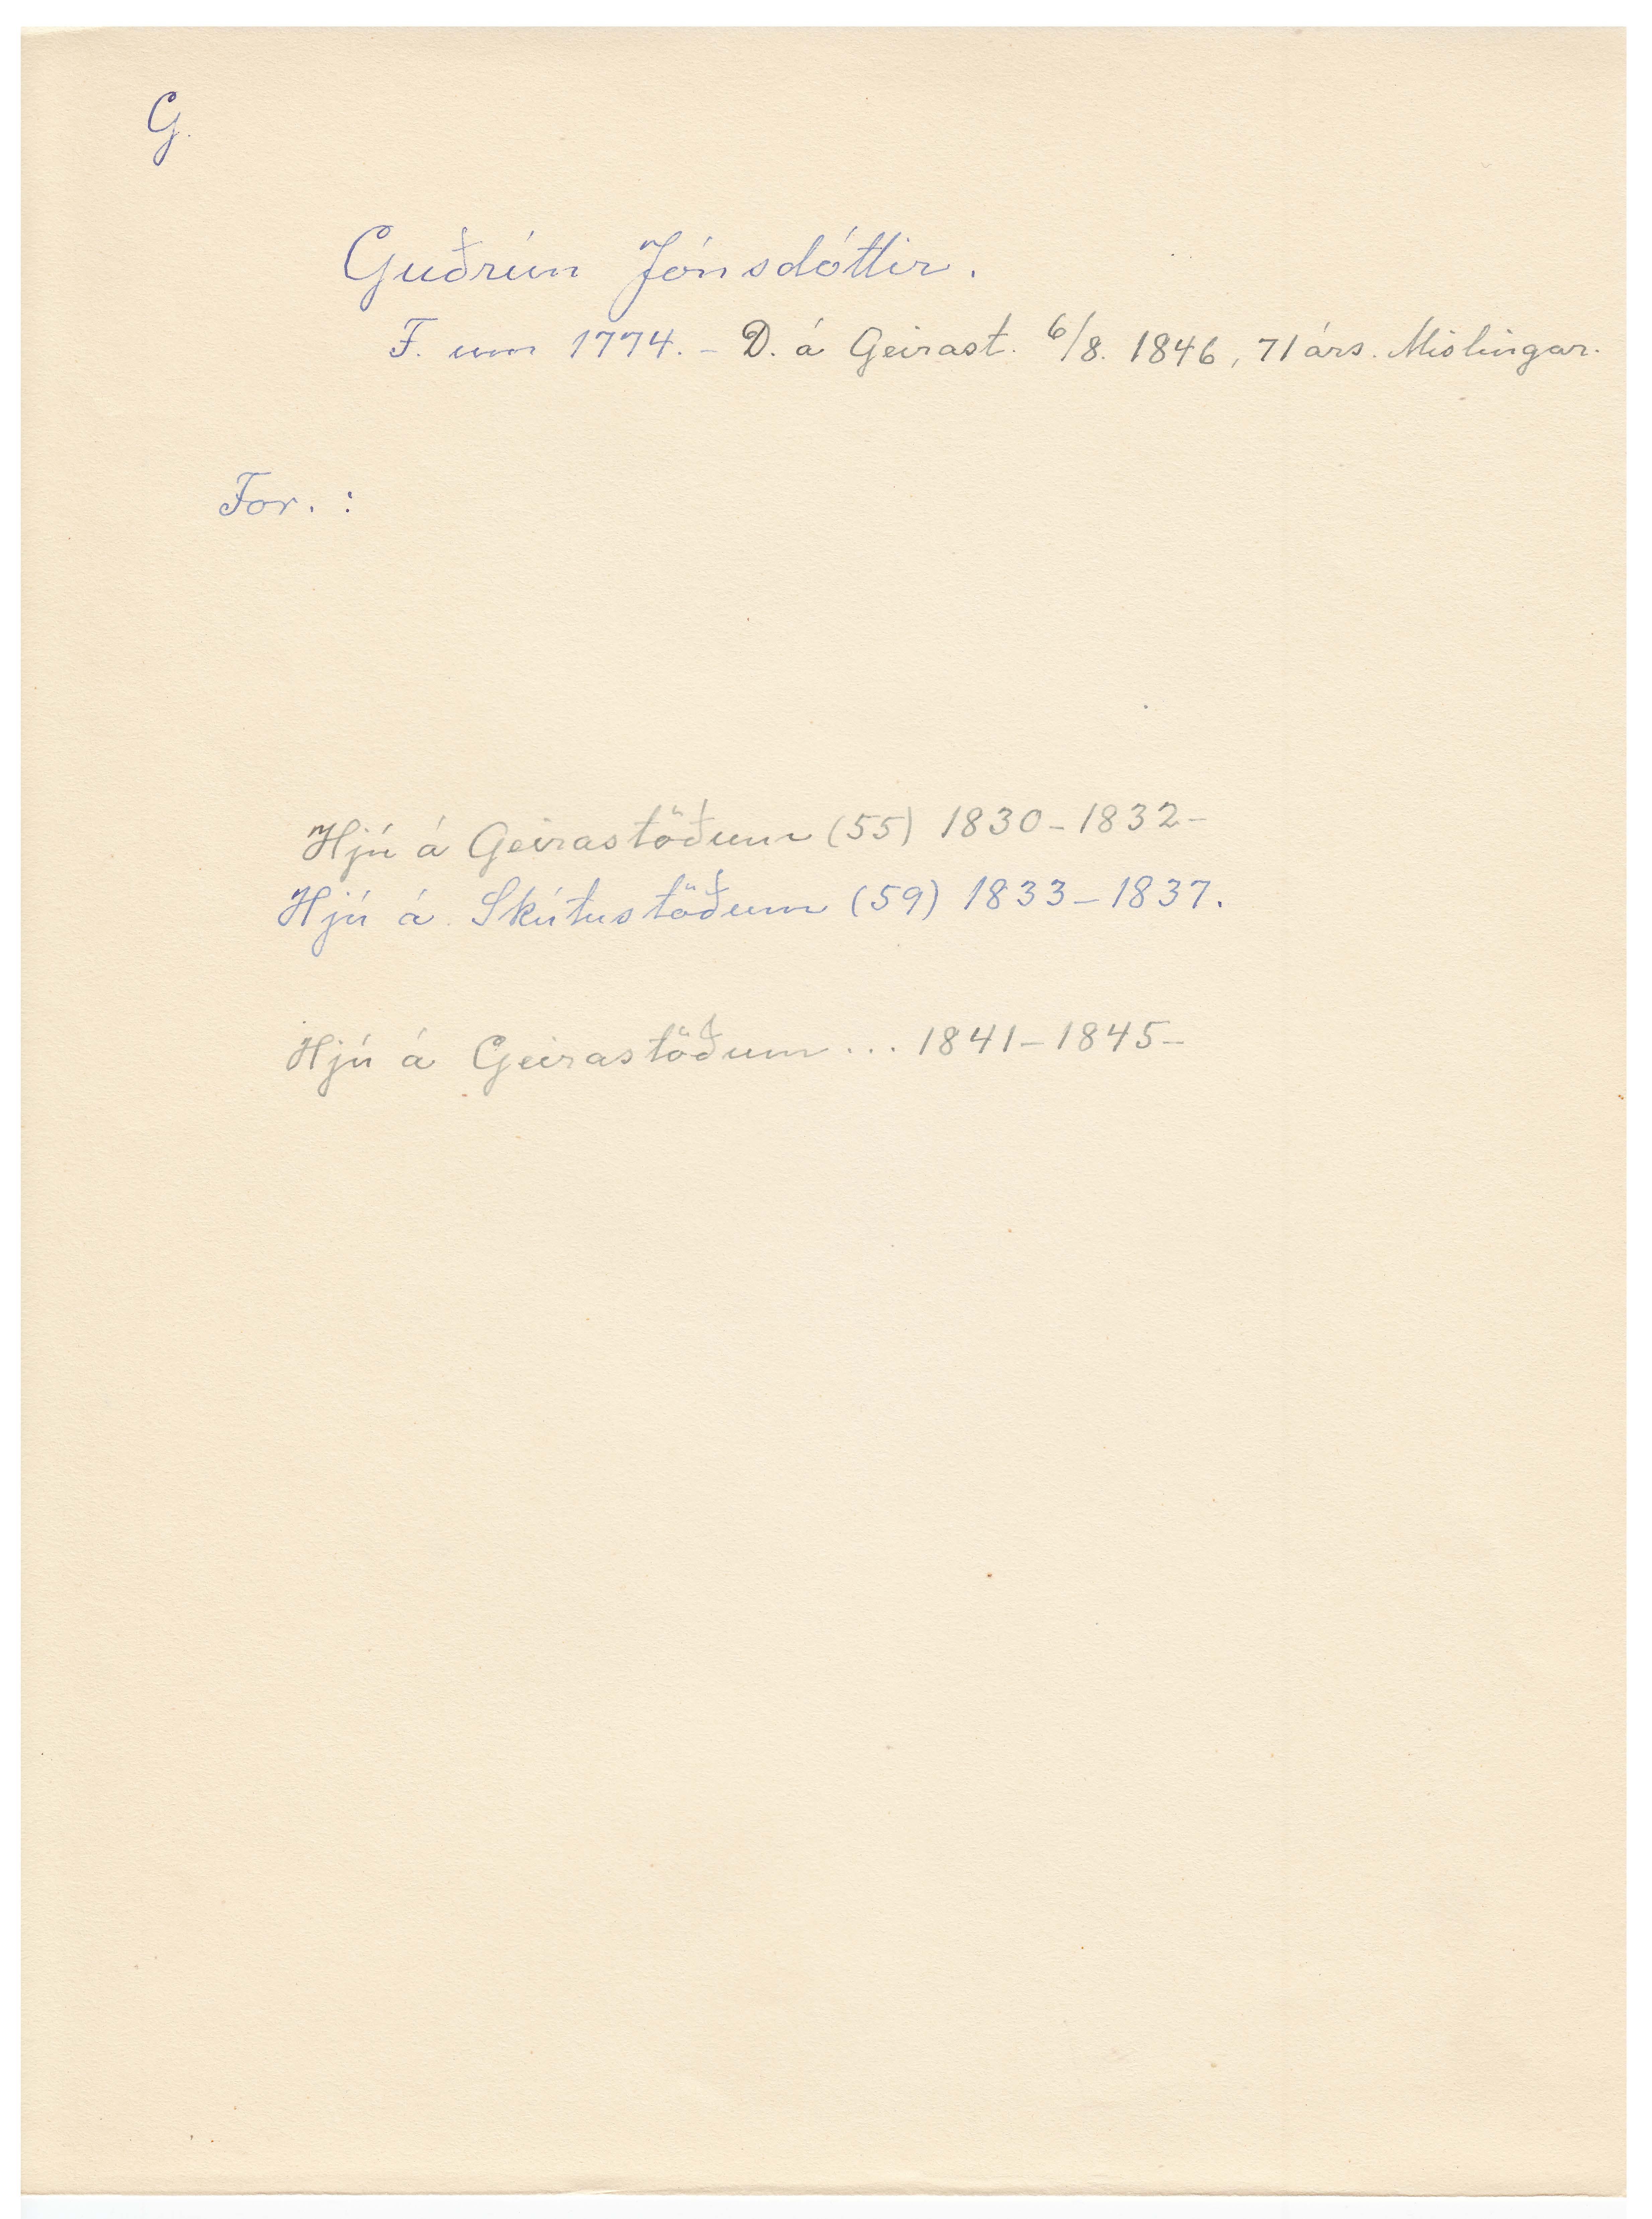 G.
Guðrún Jónsdóttir.
F. um 1774. - D. á Geirast. 6/8. 1846, 71 árs. Mislingar.
For. :
Hjú á Geirastöðum (55) 1830-1832-
Hjú á Skútustöðum (59) 1833-1837.
Hjú á Geirastöðum ... 1841-1845-